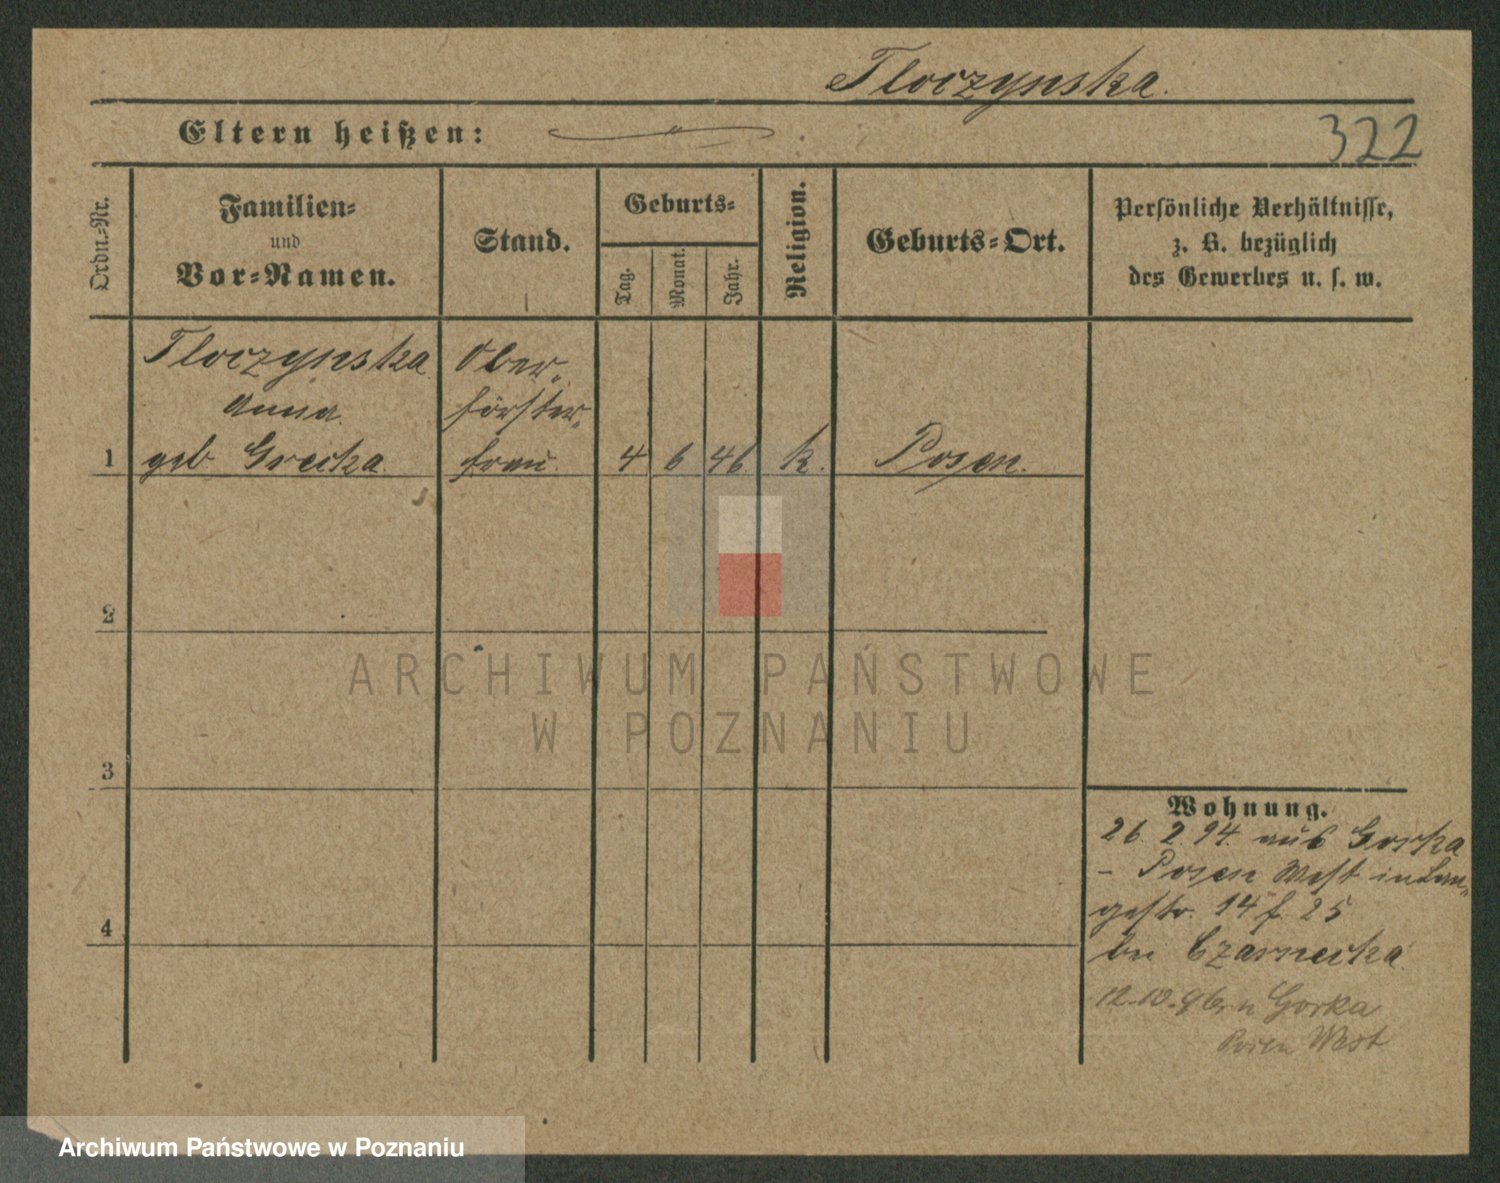 Tloczynska.
Eltern heißen:
322
Ordn.-Nr.
Familien-
und
Vor-Namen.
Stand.
Geburts-
Tag.
Monat.
Jahr.
Religion.
Geburts-Ort.
Persönliche Verhältnisse,
z. B. bezüglich
des Gewerbes u. s. w.
1
Tloczynska
Anna
geb Grecka
Ober-
förster-
frau.
4
6
46
k.
Posen.
2
3
4
Wohnung.
26. 2. 94. aus Gorka
- Posen West in Lan-
gestr. 14 f. 25
bei Czarnecka
12.10.96 n Gorka
Posen West
ARCHIWUM PAŃSTWOWE
W POZNANIU
Archiwum Państwowe w Poznaniu